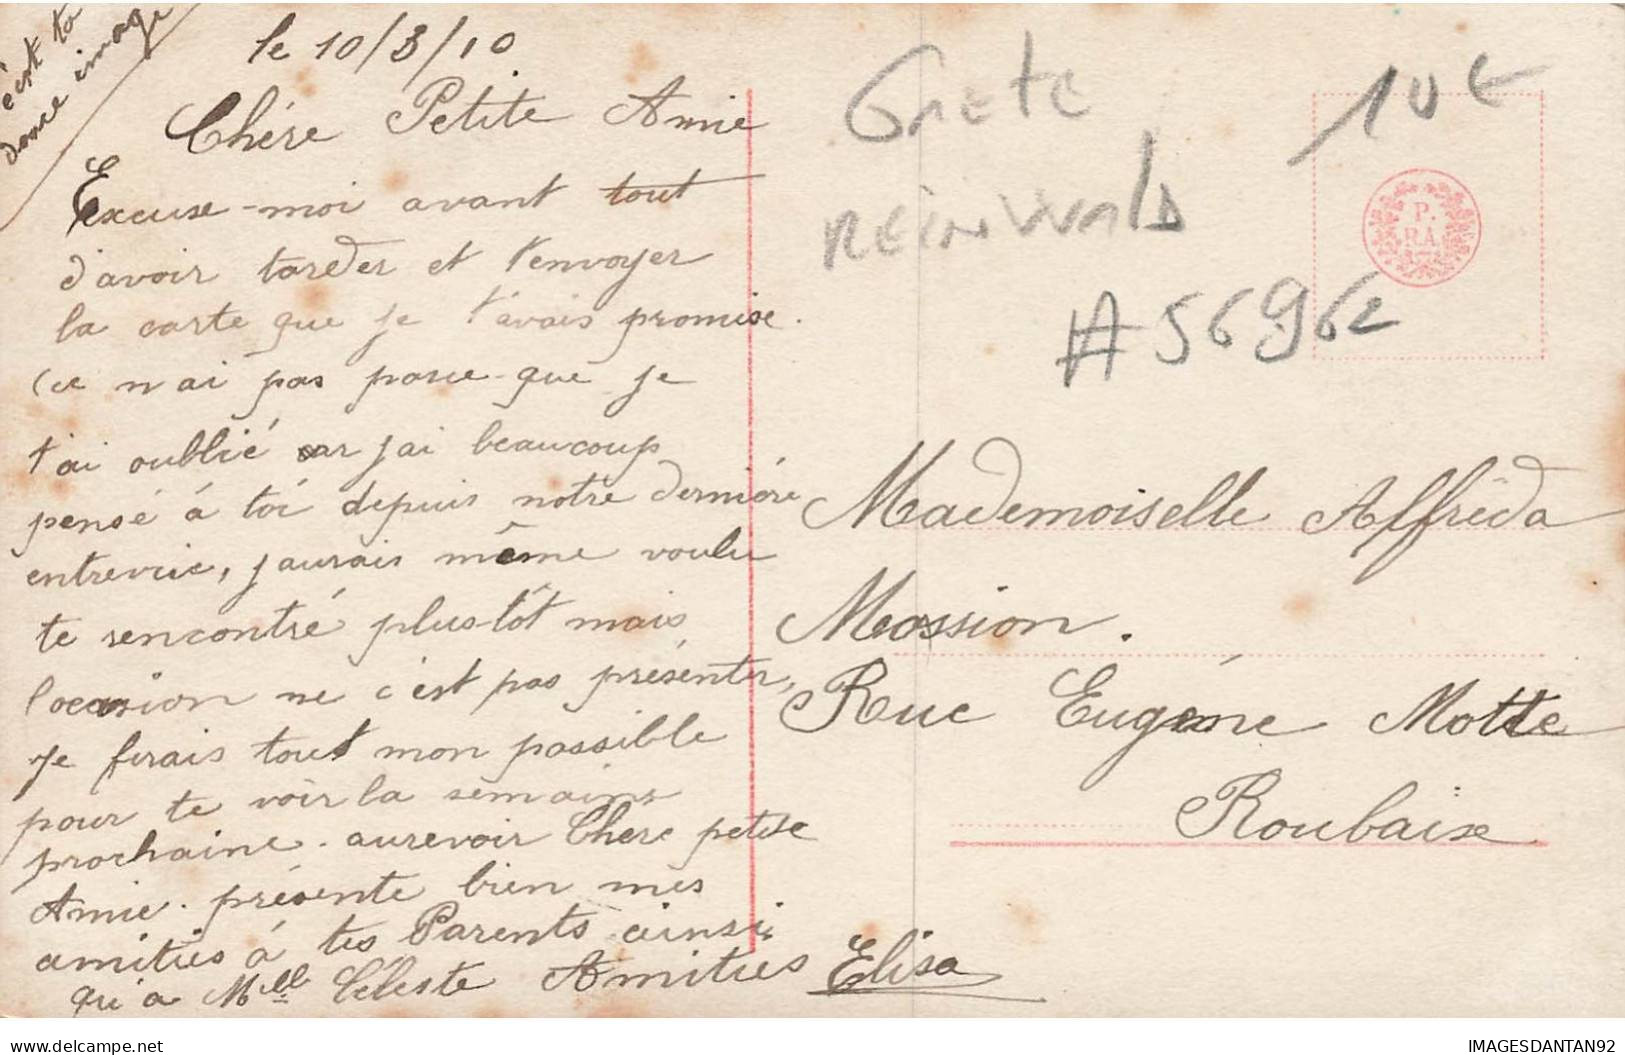 écrit ta
douce image
le 10/3/10
Chére Petite Amie
Excuse-moi avant tout
d'avoir tarder et t'envoyer
la carte que je t'avais promise.
Ce n'ai pas parce-que je
t'ai oublié car j'ai beaucoup
pensé á toi depuis notre derniére
entrevue, j'aurais même voulu
te rencontré plus-tôt mais
l'occasion ne c'est pas présenter,
je ferais tout mon possible
pour te voir la semaine
prochaine. aurevoir Chere petite
Amie. présente bien mes
amitiés á tes Parents ainsi
qu'a Mlle Céleste Amitiés Elisa
Grete
REinWalD
10€
#56962
P.
RA.
Mademoiselle Alfréda
Mossion.
Rue Eugéne Motte
Roubaix
delcampe.net
IMAGESDANTAN92